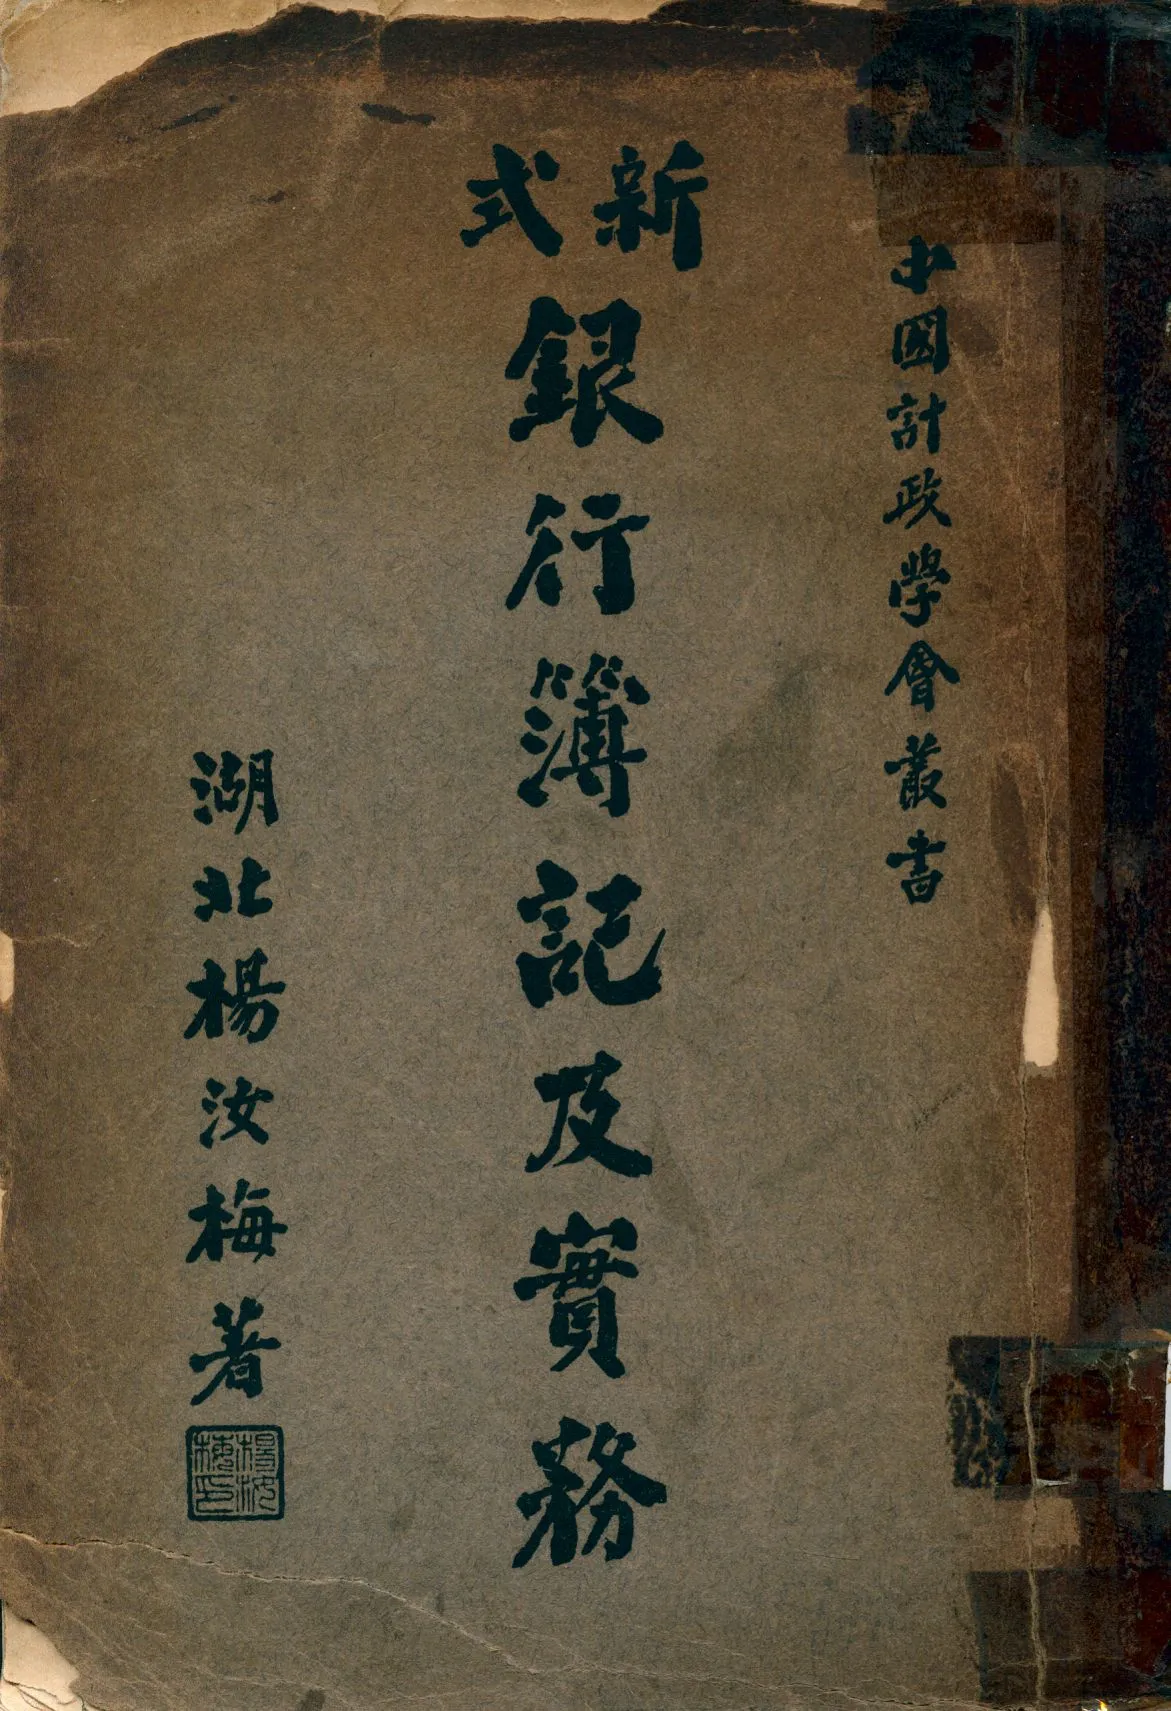 中國計政學會叢書
新式
銀行簿記及實務
湖北楊汝梅著
楊汝梅印